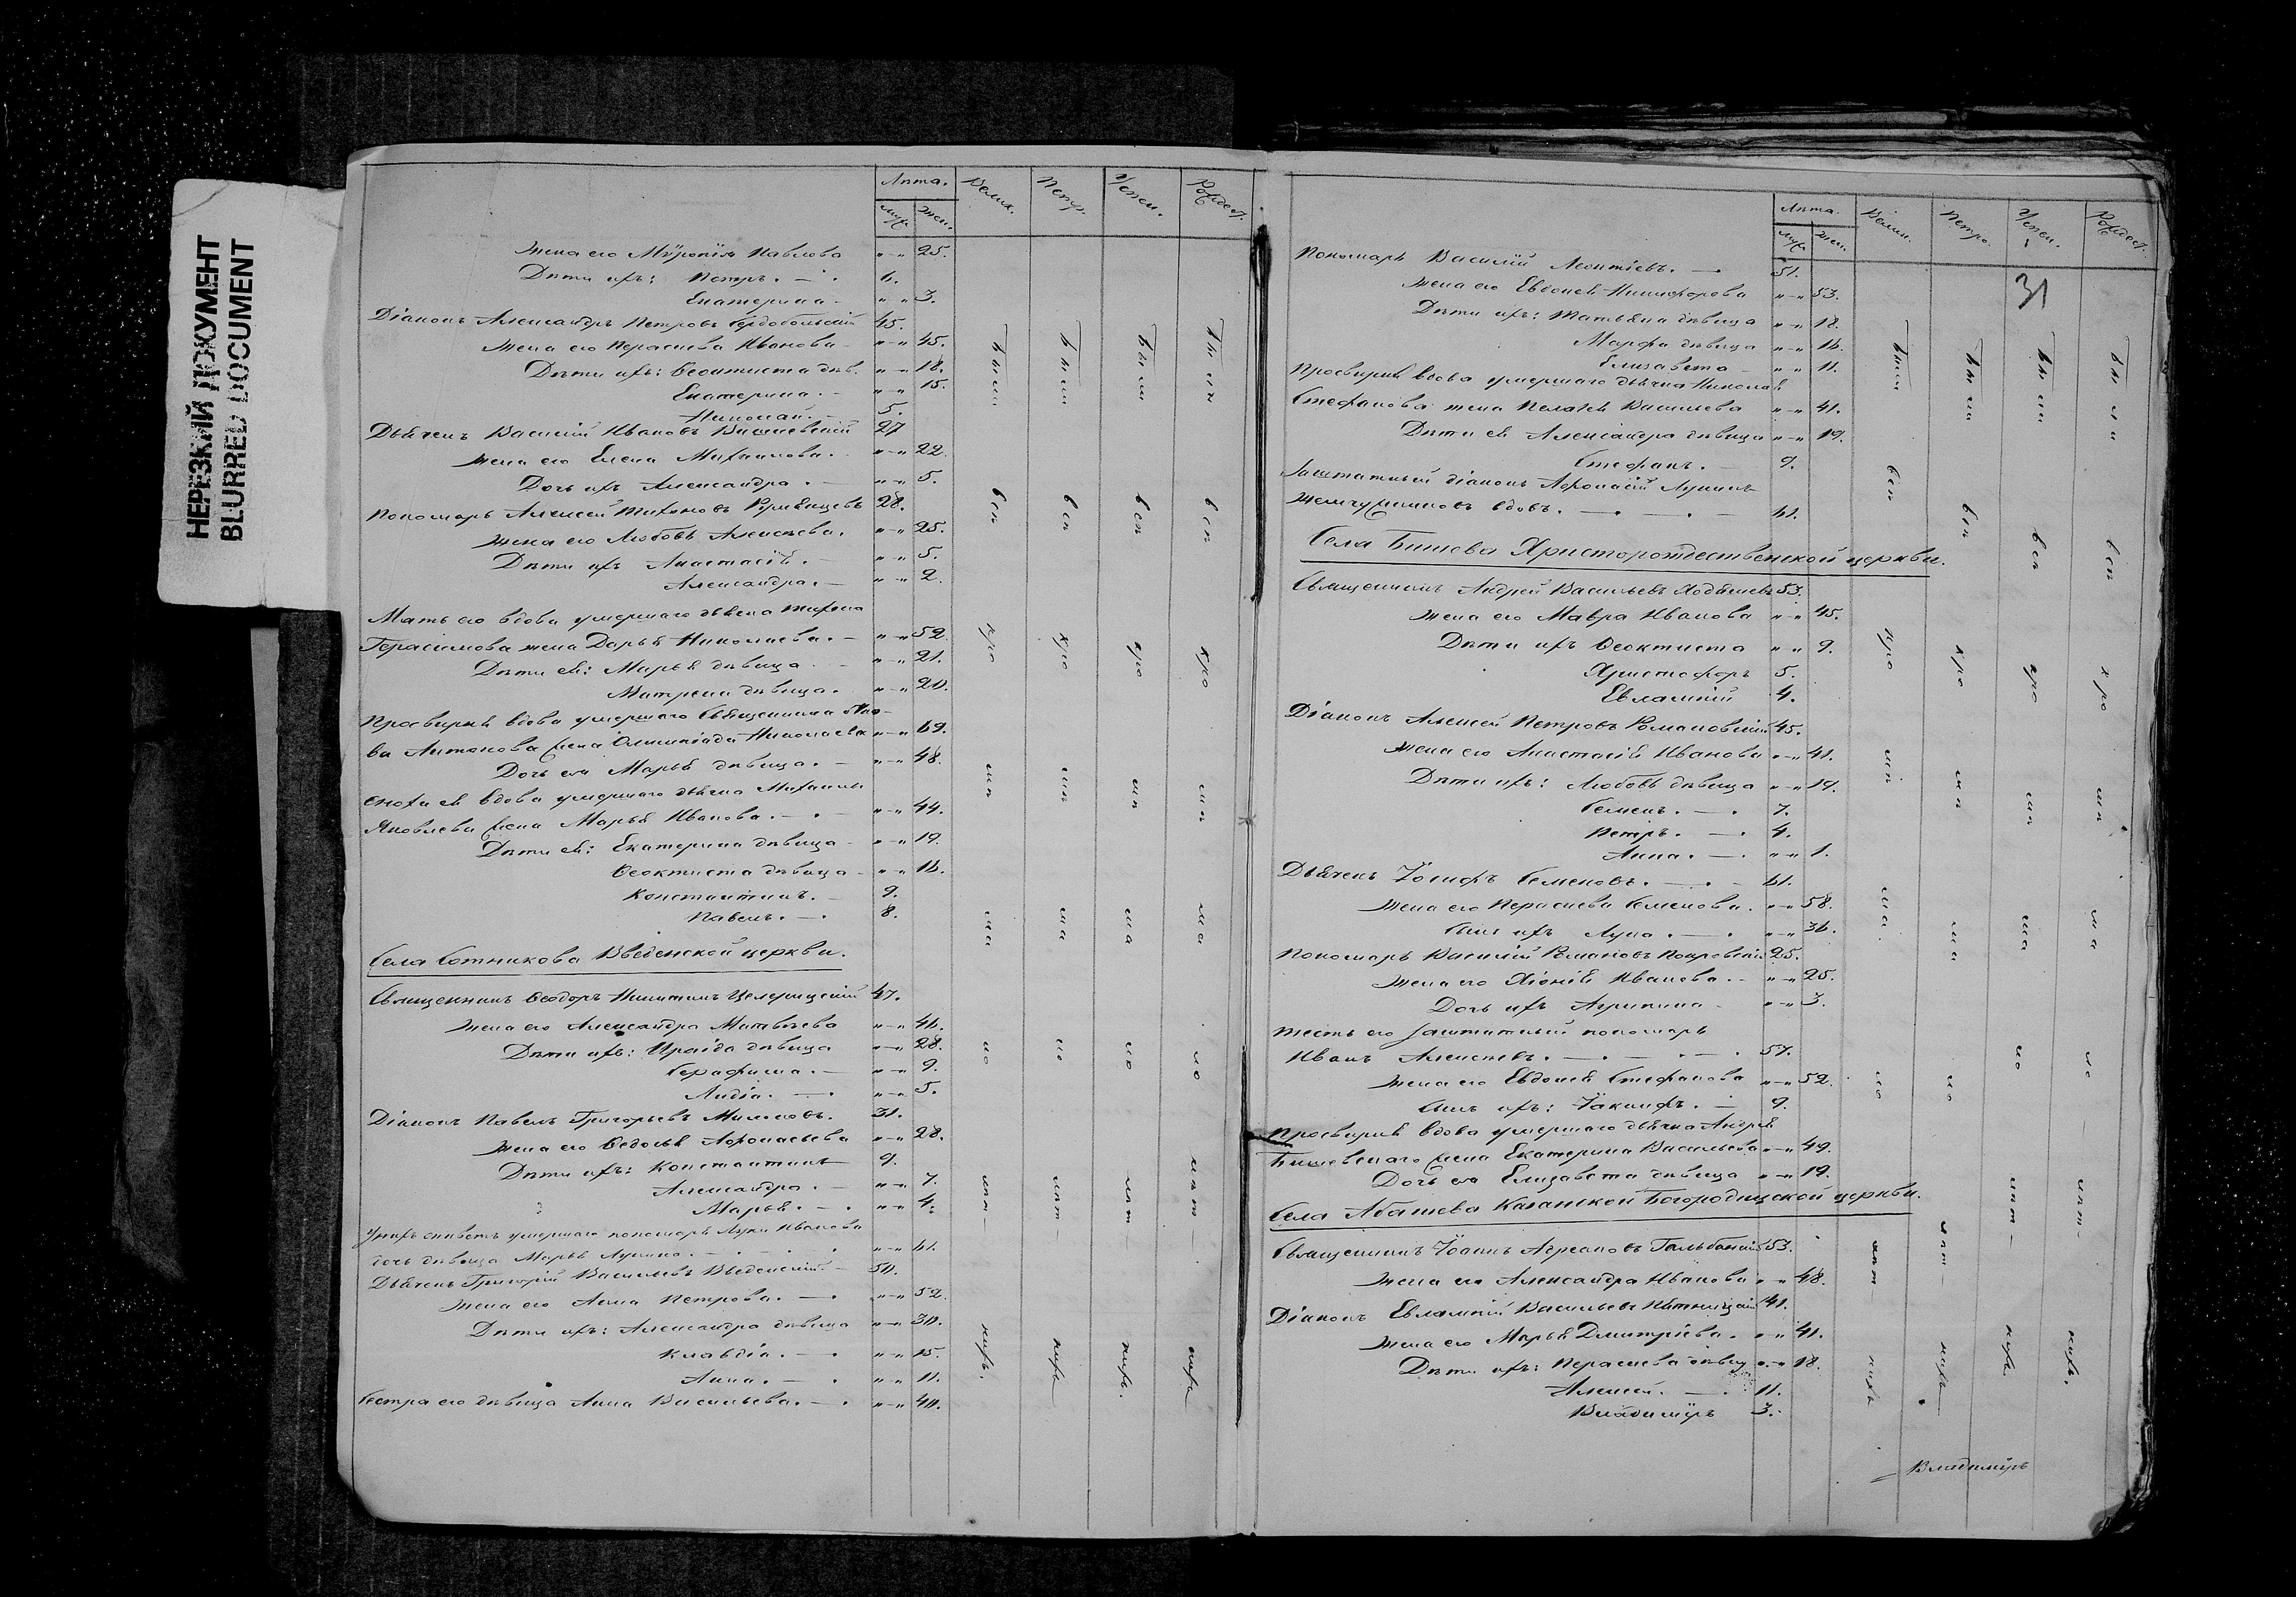 НЕРЕЗКИЙ ДОКУМЕНТ
BLURRED DOCUMENT
Лѣта. Велик. Петр. Успен. Рождест.
муж. жен.
Жена его Митропія Павлова „ — „ 25.
Дѣти ихъ: Петръ. — . 6.
Екатерина — „ „ 3.
Діаконъ Александръ Петровъ 45.
Жена его Параскева Иванова — „ — „ 45.
Дѣти ихъ: Ѳеоктиста дѣв. „ — „ 18.
Екатерина. — „ — „ 15.
Николай. — 5.
Дьячекъ Василій Ивановъ Вишневскій 27
Жена его Елена Михаилова. „ — „ 22.
Дочь ихъ Александра. — „ — „ 5.
Пономарь Алексей Тихоновъ Румянцевъ 28.
Жена его Любовь Алексѣева. „ — „ 25.
Дѣти ихъ Анастасія. — „ — „ 5.
Александра. — „ — „ 2.
Мать его вдова умершаго дьячка Тихона
Герасимова жена Дарья Николаева. — „ — „ 52.
Дѣти ея: Марья дѣвица „ — „ 21.
Матрена дѣвица. „ — „ 20.
Просвирня вдова умершаго Священника Яко-
ва Антонова жена Олимпіада Николаева „ — „ 69.
Дочь ея Марья дѣвица. — „ — „ 48.
Сноха ея вдова умершаго дьячка Михаила
Яковлева жена Марья Иванова. — . „ — „ 44.
Дѣти ея: Екатерина дѣвица „ — „ 19.
Ѳеоктиста дѣвица — „ — „ 16.
Константинъ. — 9.
Павелъ. — . 8.
Села Сотникова Введенской церкви.
Священникъ Ѳеодоръ Никитинъ 47.
Жена его Александра Матвѣева „ — „ 46.
Дѣти ихъ: Ираида дѣвица „ — „ 28.
Серафима. — „ — „ 9.
Лидія. — . „ — „ 5.
Діаконъ Павелъ Григорьевъ Милоновъ. 31.
Жена его Ѳедосья Афонасьева „ — „ 28.
Дѣти ихъ: Константинъ 9.
Александра. — „ — „ 7.
Марья. — . „ — „ 4.
умершаго пономаря Луки Иванова
дочь дѣвица Марья Лукина. — . „ — „ 61.
Дьячекъ Григорій Васильевъ Введенскій. — 50.
Жена его Анна Петрова. — . „ — „ 52.
Дѣти ихъ: Александра дѣвица „ — „ 30.
Клавдія. — . „ — „ 15.
Анна. — . „ — „ 11.
Сестра его дѣвица Анна Васильева. — . „ — „ 40.
Были вси про ми ма ио
Были вси про ми ма ио
Были вси про ми ма ио
Были вси про ми ма ио
Лѣта. Велик. Петро. Успен. Рождест.
муж. жен.
31
Пономарь Василій Леонтіевъ. — . 51.
Жена его Евдокея Никифорова „ — „ 53.
Дѣти ихъ: Татьяна дѣвица „ — „ 18.
Марфа дѣвица „ — „ 16.
Елизавета „ — „ 11.
Просвирня вдова умершаго дьячка Николая
Стефанова жена Пелагея Васильева „ — „ 41.
Дѣти ея Александра дѣвица „ — „ 19.
Стефанъ. — 9.
Заштатный діаконъ Афонасій Лукинъ
Жемчужниковъ вдовъ. — . — 61.
Села Бишева Христорождественской церкви.
Священникъ Андрей Васильевъ 53.
Жена его Мавра Иванова „ — „ 45.
Дѣти ихъ Ѳеоктиста „ — „ 9.
Христофоръ 5.
Евлампій 4.
Діаконъ Алексей Петровъ Романовскій 45.
Жена его Анастасія Иванова „ — „ 41.
Дѣти ихъ: Любовь дѣвица „ — „ 19.
Семенъ. — . 7.
Петръ. — . 4.
Анна. — . „ — „ 1.
Дьячекъ Іосифъ Семеновъ. — . — 61.
Жена его Параскева Семенова. „ — „ 58.
Сынъ ихъ Лука. — . „ — „ 36.
Пономарь Василій Романовъ Покровскій 25.
Жена его Хіонія Иванова. — „ — „ 25.
Дочь ихъ Агрипина „ — „ 3.
Тесть его заштатный пономарь
Иванъ Алексѣевъ. — . — . — . 57.
Жена его Евдокея Стефанова „ — „ 52.
Сынъ ихъ: Іакинфъ. — 9.
Просвирня вдова умершаго дьячка Андрея
Бишевскаго жена Екатерина Васильева „ — „ 49.
Дочь ея Елизавета дѣвица „ — „ 19.
Села Абашева Казанской Богородицкой церкви.
Священникъ Іоаннъ Адреановъ 53.
Жена его Александра Иванова „ — „ 48.
Діаконъ Евлампій Васильевъ Пятницкій 41.
Жена его Марья Дмитріева. „ — „ 41.
Дѣти ихъ: Параскева дѣвиц. „ — „ 18.
Алексей. — . 11.
Владиміръ 3.
Были вси про ми ма ио
Были вси про ми ма ио
Были вси про ми ма ио
Были вси про ми ма ио
Владиміръ